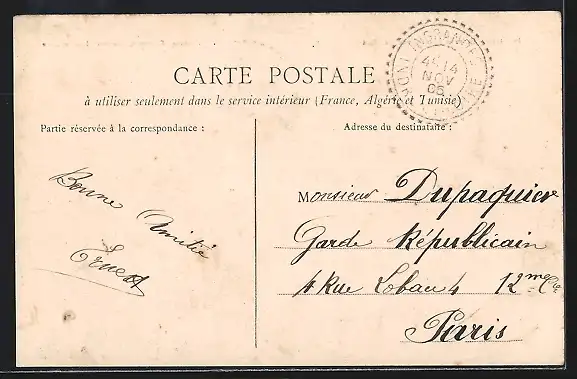 CARTE POSTALE
à utiliser seulement dans le service intérieur (France, Algérie et Tunisie)
Partie réservée à la correspondance :
Adresse du destinataire :
Bonne Amitié
Ernest
Monsieur Dupaquier
Garde Républicain
4 Rue Lobau 4 12me Cie
Paris
14
NOV